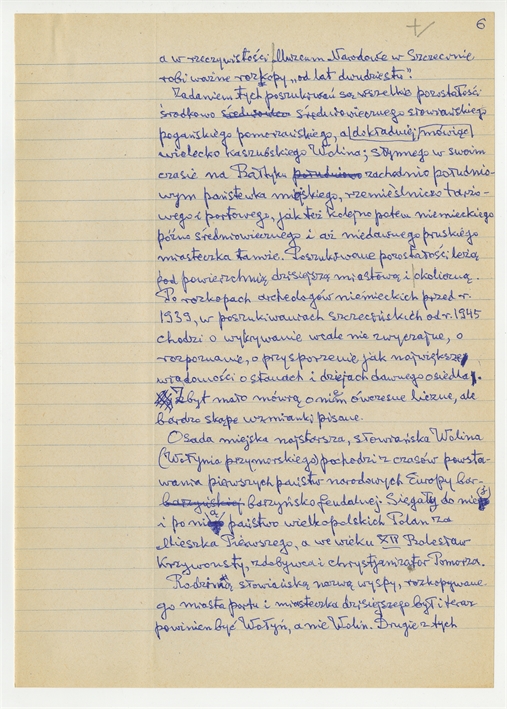 6
a w rzeczywistości Muzeum Narodowe w Szczecinie
robi ważne rozkopy „od lat dwudziestu".
Zadaniem tych poszukiwań są wszelkie pozostałości
środkowo średniowiecznego słowiańskiego
pogańskiego pomorzańskiego, a dokładniej mówiąc
wielecko kaszubskiego Wolina; słynnego w swoim
czasie na Bałtyku południowo zachodnio południo-
wym państewka miejskiego, rzemieślniczo targo-
wego i portowego, jak też kolejno potem niemieckiego
późno średniowiecznego i aż niedawnego pruskiego
miasteczka tamże. Poszukiwane pozostałości leżą
pod powierzchnią dzisiejszą miastową i okoliczną.
Po rozkopach archeologów niemieckich przed r.
1939, w poszukiwaniach szczecińskich od r. 1945
chodzi o wykrywanie wcale nie zwyczajne, o
rozpoznanie, o przysporzenie jak najwięksej
wiadomości o stanach i dziejach dawnego osiedla.
Zbyt mało mówią o nim ówczesne liczne, ale
bardzo skąpe wzmianki pisane.
Osada miejska najstarsza, słowiańska Wolina
(Wołynia przymorskiego) pochodzi z czasów powsta-
wania pierwszych państw narodowych Europy bar-
barzyńsko feudalnej. Sięgały do niej
i po nią państwo wielkopolskich Polan za
Mieszka Pierwszego, a we wieku XII Bolesław
Krzywousty, zdobywca i chrystjanizator Pomorza.
Rodzimą słowiańską nazwą wyspy, rozkopywane-
go miasta portu i miasteczka dzisiejszego był i teraz
powinien być Wołyń, a nie Wolin. Drugie z tych